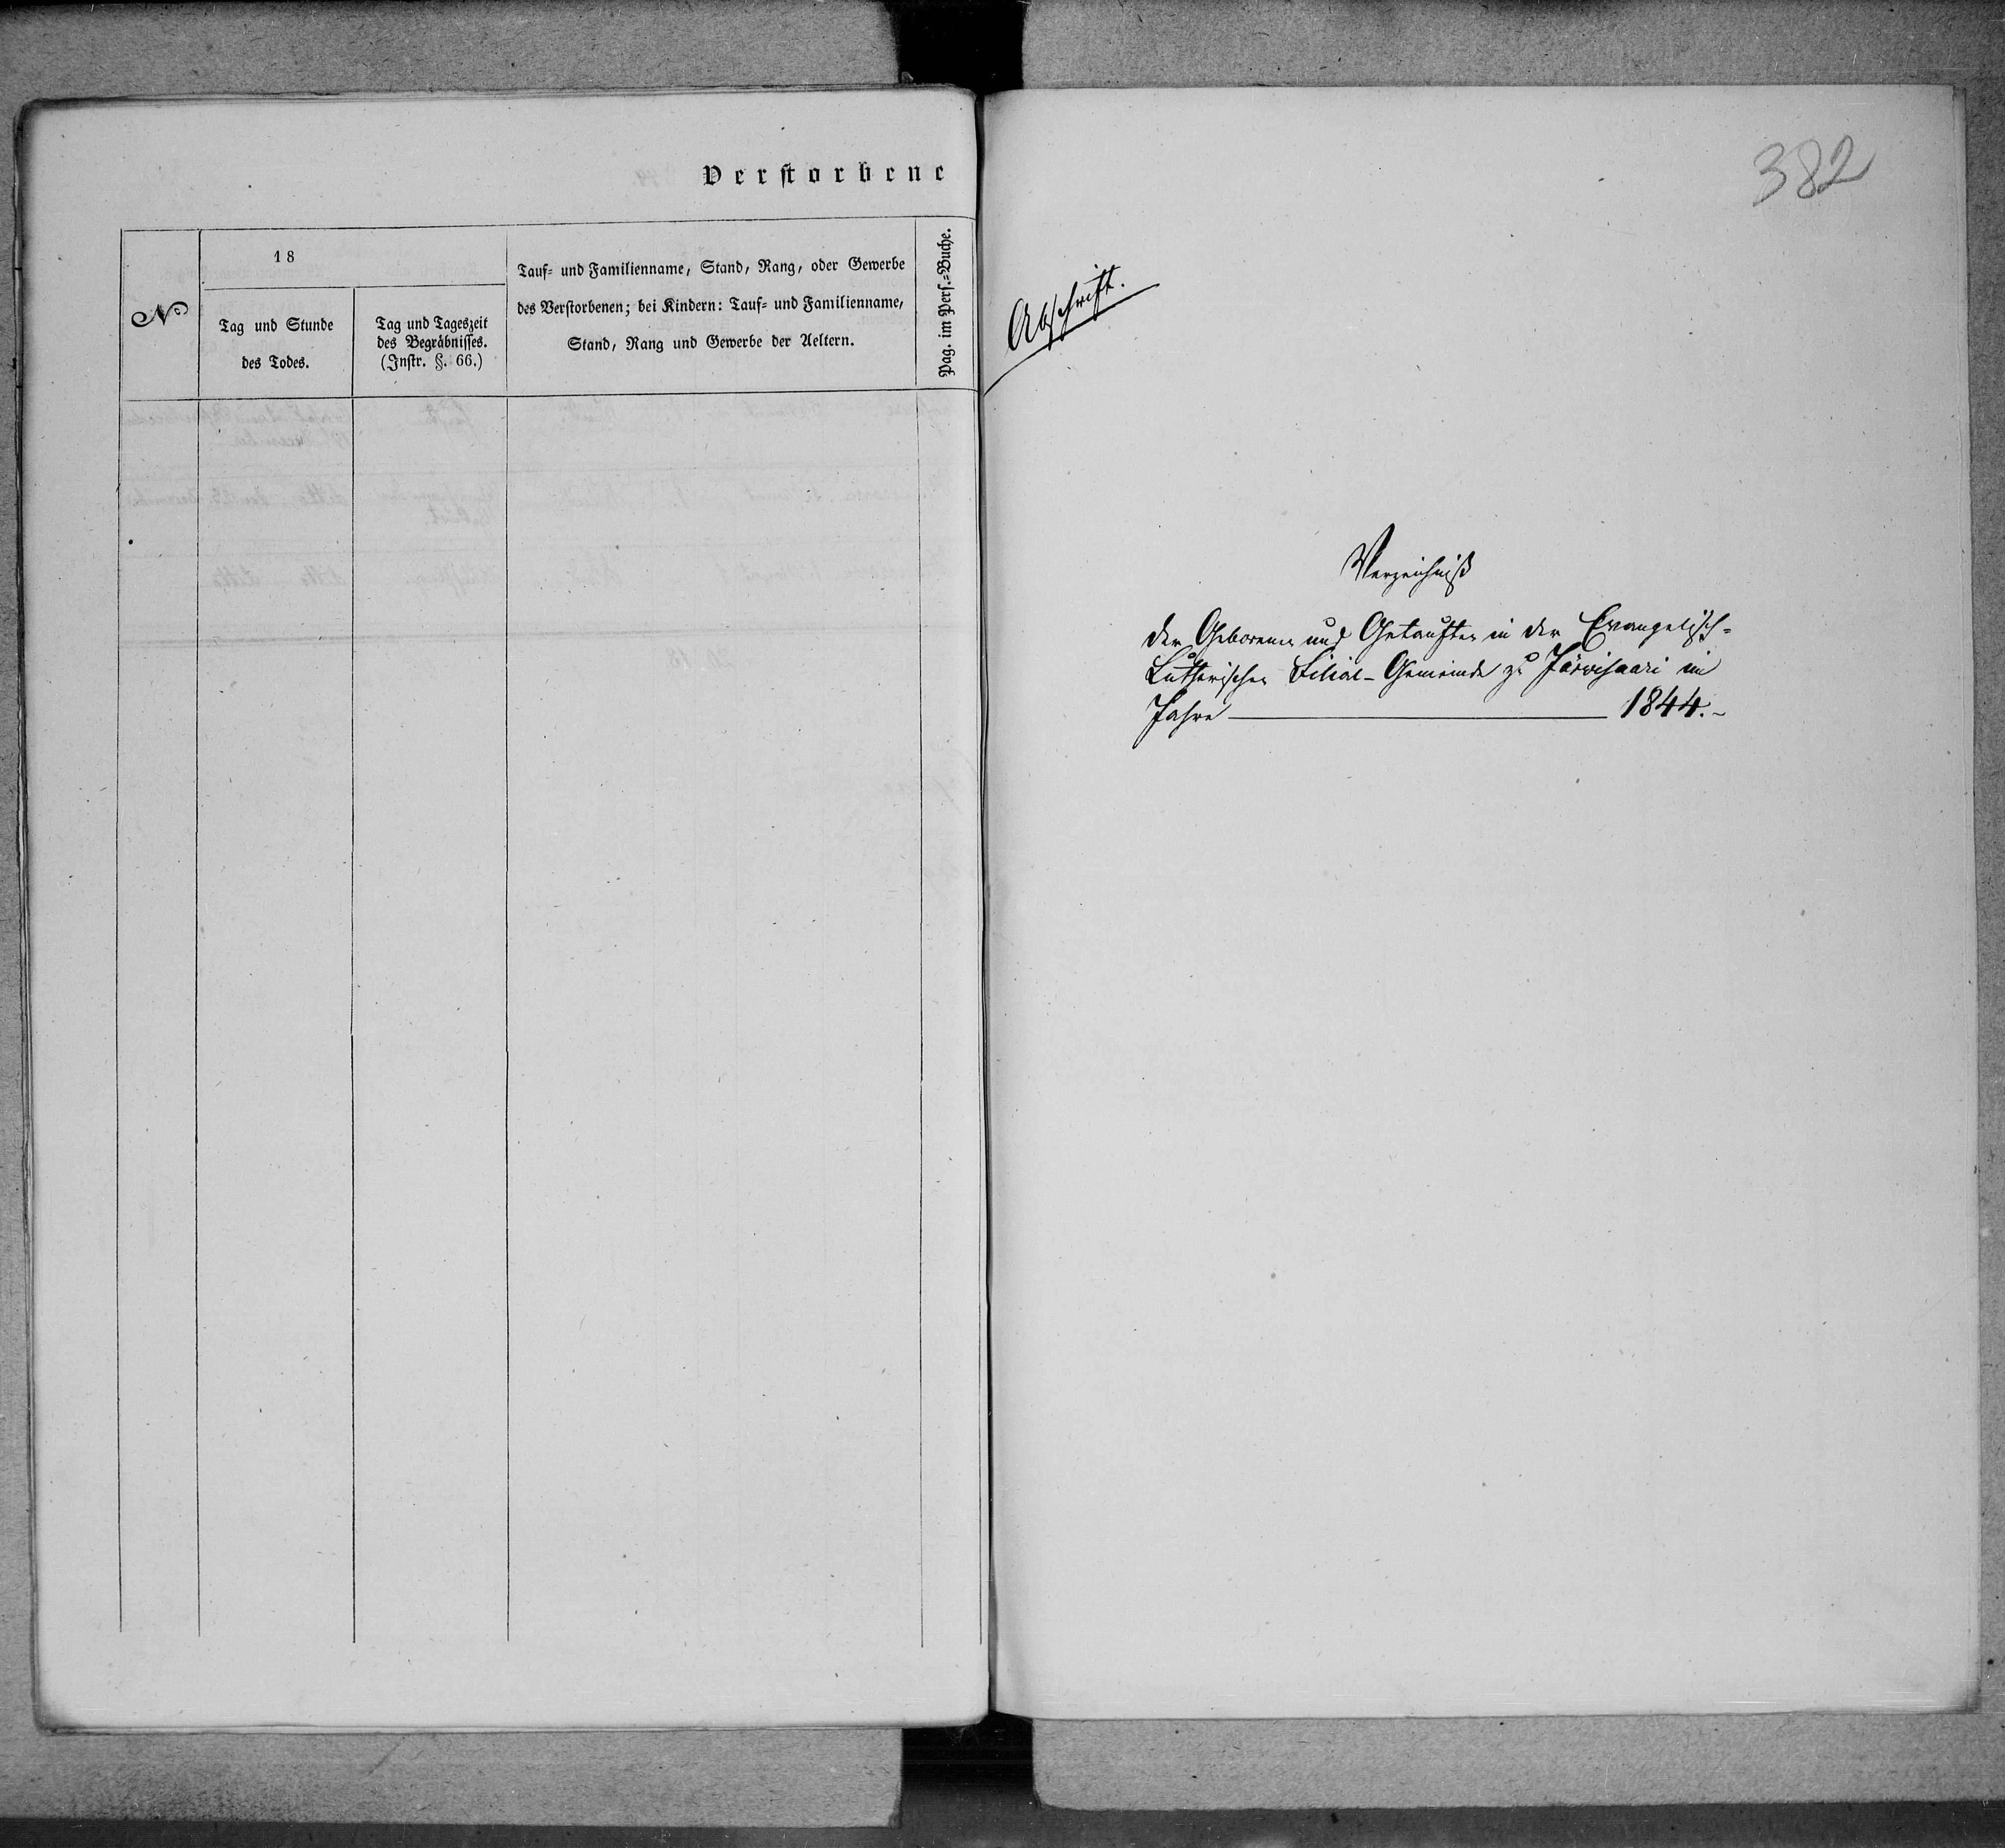 Verstorbene
No
18
Tag und Stunde
des Todes.
Tag und Tageszeit
des Begräbnisses.
(Instr. §. 66.)
Tauf- und Familienname, Stand, Rang, oder Gewerbe
des Verstorbenen; bei Kindern: Tauf- und Familienname,
Stand, Rang und Gewerbe der Aeltern.
Pag. im Pers.-Buche.
382
Abschrift.
Verzeichniß
der Geborenen und Getauften in der Evangelisch-
Lutherischen Filial-Gemeinde zu Järvisaari im
Jahre 1844.-